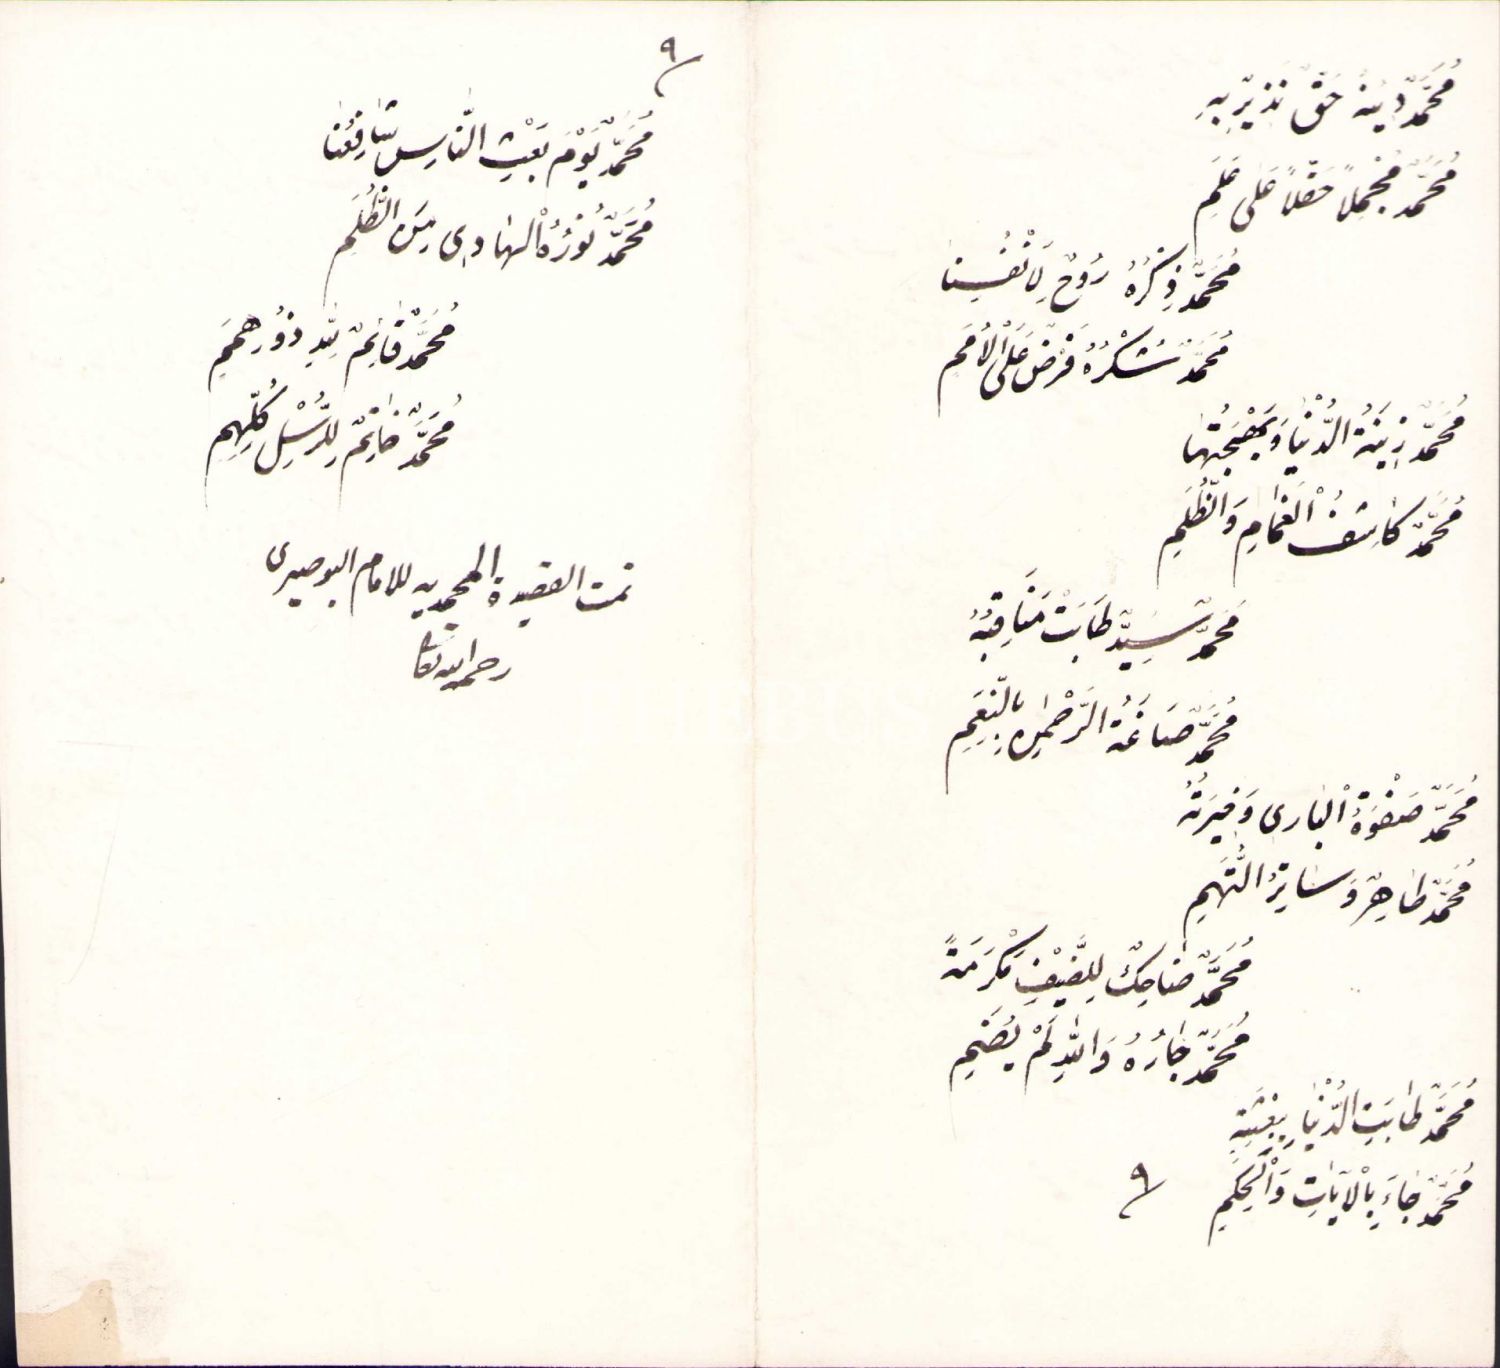 مُحَمَّدٌ دِينُهُ حَقٌّ نَذِيرٌ بِهِ
مُحَمَّدٌ مُجْمِلاً حَقًّا عَلَى عَلَمِ
مُحَمَّدٌ ذِكْرُهُ رُوحٌ لِأَنْفُسِنَا
مُحَمَّدٌ شُكْرُهُ فَرْضٌ عَلَى الْأُمَمِ
مُحَمَّدٌ زِينَةُ الدُّنْيَا وَبَهْجَتُهَا
مُحَمَّدٌ كَاشِفُ الْغَمَامِ وَالظُّلَمِ
مُحَمَّدٌ سَيِّدٌ طَابَتْ مَنَاقِبُهُ
مُحَمَّدٌ صَاغَهُ الرَّحْمٰنُ بِالنِّعَمِ
مُحَمَّدٌ صَفْوَةُ الْبَارِى وَخِيَرَتُهُ
مُحَمَّدٌ طَاهِرٌ وَسَاتِرُ التُّهَمِ
مُحَمَّدٌ ضَاحِكٌ لِلضَّيْفِ مَكْرَمَةً
مُحَمَّدٌ جَارُهُ وَاللّٰهِ لَمْ يُضَمِ
مُحَمَّدٌ طَابَتِ الدُّنْيَا بِبِعْثَتِهِ
مُحَمَّدٌ جَاءَ بِالْآيَاتِ وَالْحِكَمِ
٩
٩
مُحَمَّدٌ يَوْمَ بَعْثِ النَّاسِ شَافِعُنَا
مُحَمَّدٌ نُورُهُ الْهَادِى مِنَ الظُّلَمِ
مُحَمَّدٌ قَائِمٌ لِلّٰهِ ذُو هِمَمِ
مُحَمَّدٌ خَاتِمٌ لِلرُّسْلِ كُلِّهِمِ
تمت القصيدة المحمديه للامام البوصيرى
رحمه الله تعالى
PHEBUS